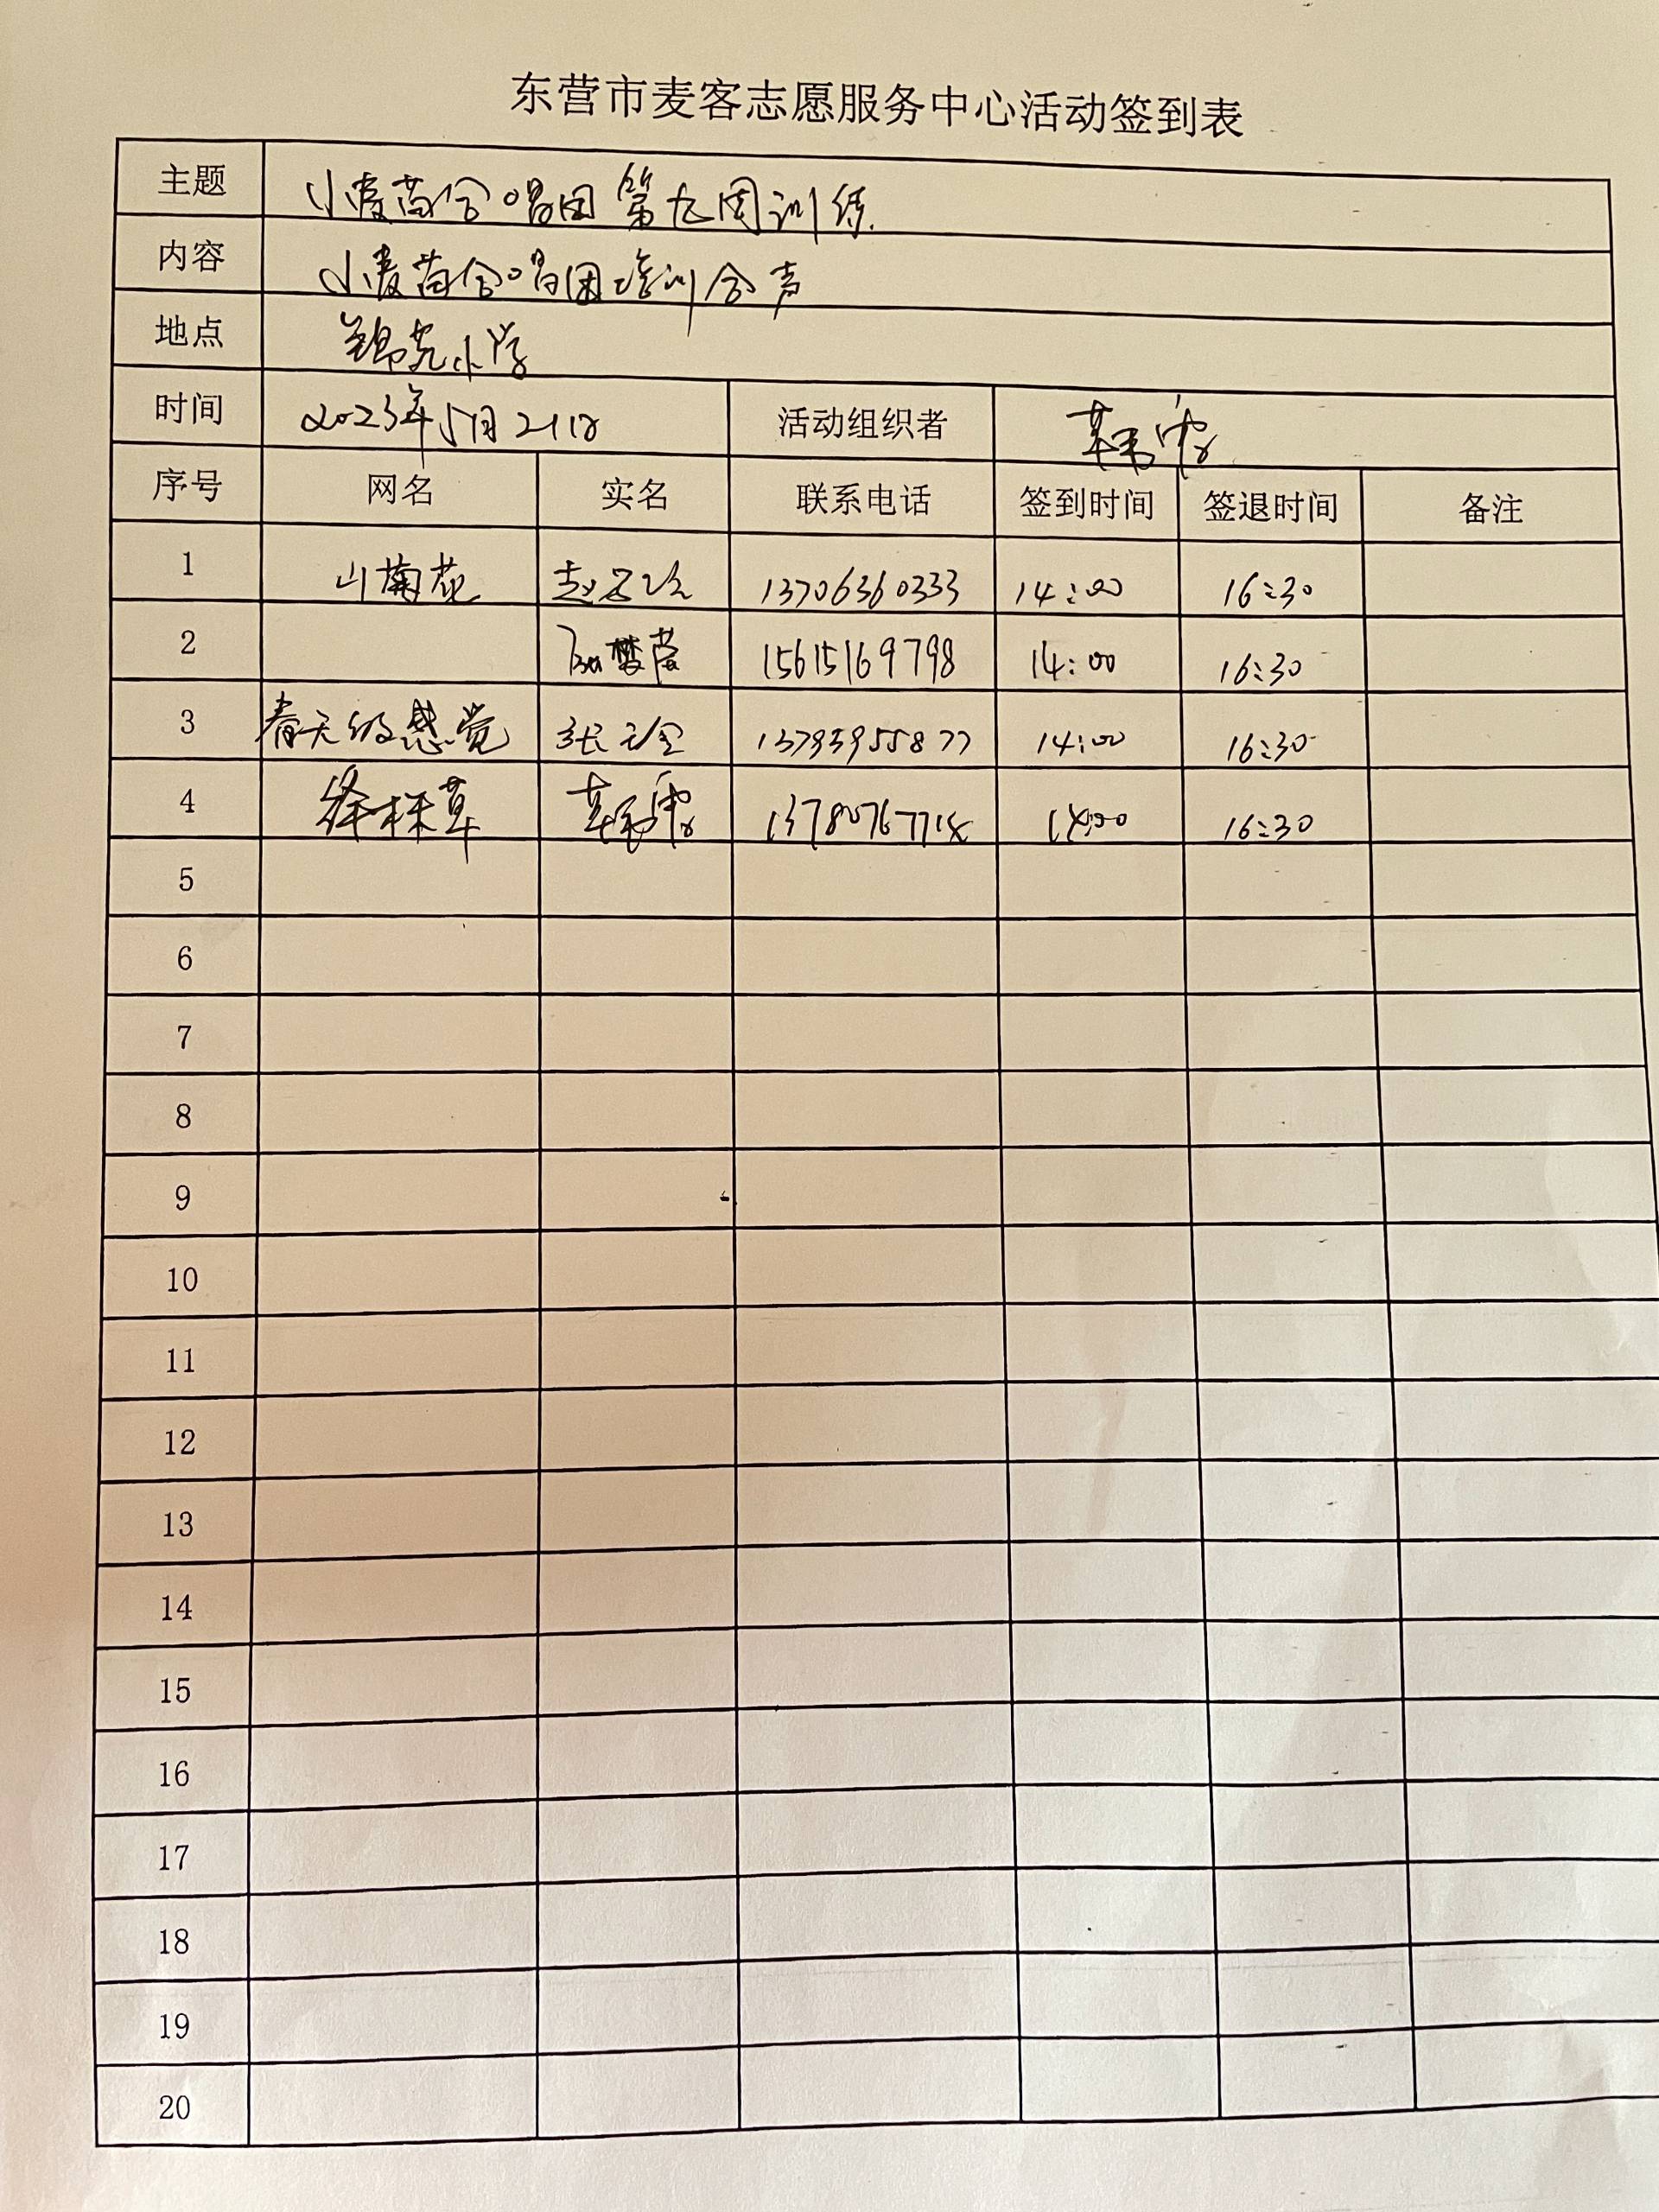 东营市麦客志愿服务中心活动签到表
主题 小麦苗合唱团第九周训练
内容 小麦苗合唱团培训合声
地点 锦苑小学
时间 2023年5月21日 活动组织者
序号 网名 实名 联系电话 签到时间 签退时间 备注
1 山菊花 13706360333 14:00 16:30
2 15615169798 14:00 16:30
3 春天的感觉 13793955877 14:00 16:30
4 14:00 16:30
5
6
7
8
9
10
11
12
13
14
15
16
17
18
19
20